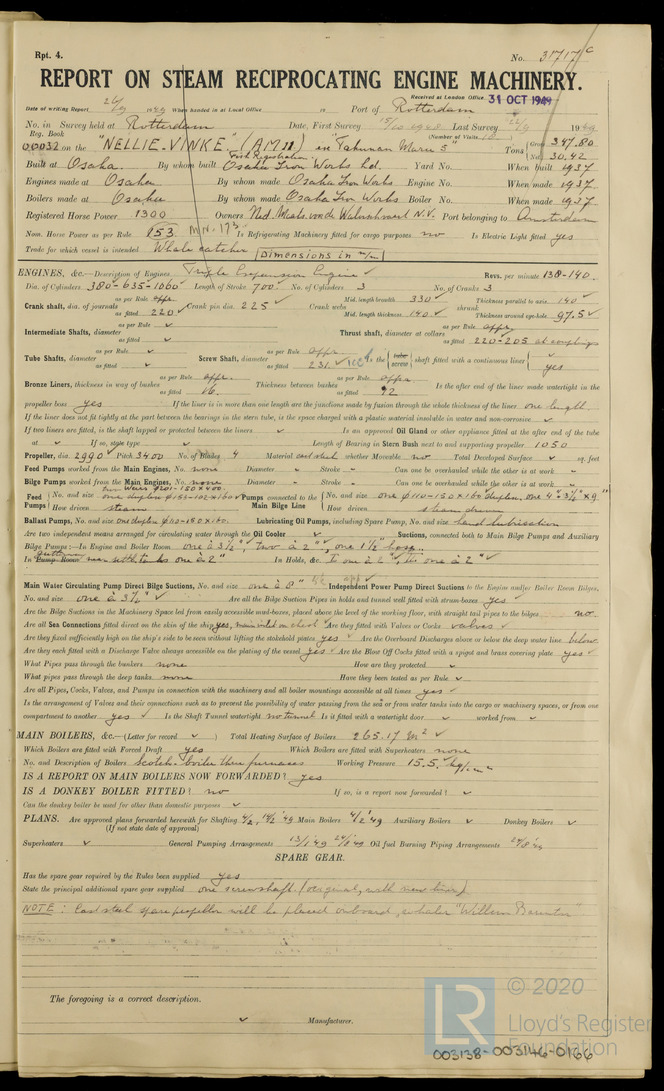 Rpt. 4.
No. 31717 c
REPORT ON STEAM RECIPROCATING ENGINE MACHINERY.
Received at London Office 31 OCT 1949
Date of writing Report 1949 When handed in at Local Office 19 Port of Rotterdam
No. in Survey held at Rotterdam Date, First Survey Last Survey 1949
Reg. Book (Number of Visits
00032 on the "NELLIE-VINKE" ex "Takunan Maru 5" Tons Gross 347.80 Net 30.42
Built at Osaka. By whom built Osaka Iron Works Ltd. Yard No. When built 1937
Engines made at Osaka By whom made Osaka Iron Works Engine No. When made 1937
Boilers made at Osaka By whom made Osaka Iron Works Boiler No. When made 1937
Registered Horse Power 1300 Owners N.V. Port belonging to Amsterdam
Nom. Horse Power as per Rule 153 M.N. 173 Is Refrigerating Machinery fitted for cargo purposes no Is Electric Light fitted yes
Trade for which vessel is intended Whale catcher Dimensions in m/m
ENGINES, &c.—Description of Engines Triple Expansion Engine ✓ Revs. per minute 138-140.
Dia. of Cylinders 380-635-1060 Length of Stroke 700 No. of Cylinders 3 No. of Cranks 3
Crank shaft, dia. of journals as per Rule appr. as fitted 220 Crank pin dia. 225 Crank webs Mid. length breadth 330 Mid. length thickness 140 shrunk Thickness parallel to axis 140 Thickness around eye-hole 97.5
Intermediate Shafts, diameter as per Rule ✓ as fitted ✓ Thrust shaft, diameter at collars as per Rule appr. as fitted 220-205 at couplings
Tube Shafts, diameter as per Rule ✓ as fitted ✓ Screw Shaft, diameter as per Rule appr. as fitted 231 Is the tube screw shaft fitted with a continuous liner yes
Bronze Liners, thickness in way of bushes as per Rule appr. as fitted 16. Thickness between bushes as per Rule appr. as fitted 12 Is the after end of the liner made watertight in the
propeller boss yes If the liner is in more than one length are the junctions made by fusion through the whole thickness of the liner one length.
If the liner does not fit tightly at the part between the bearings in the stern tube, is the space charged with a plastic material insoluble in water and non-corrosive ✓
If two liners are fitted, is the shaft lapped or protected between the liners ✓ Is an approved Oil Gland or other appliance fitted at the after end of the tube
at ✓ If so, state type ✓ Length of Bearing in Stern Bush next to and supporting propeller 1050
Propeller, dia. 2990 Pitch 3400 No. of Blades 4 Material cast steel whether Moveable no Total Developed Surface ✓ sq. feet
Feed Pumps worked from the Main Engines, No. none Diameter ✓ Stroke ✓ Can one be overhauled while the other is at work ✓
Bilge Pumps worked from the Main Engines, No. none Diameter ✓ Stroke ✓ Can one be overhauled while the other is at work ✓
Feed Pumps No. and size one duplex Pumps connected to the Main Bilge Line No. and size one ø110-150x160 duplex, one 4" 3½" x 9"
How driven steam How driven steam driven
Ballast Pumps, No. and size one duplex ø110-150x160. Lubricating Oil Pumps, including Spare Pump, No. and size hand lubrication
Are two independent means arranged for circulating water through the Oil Cooler ✓ Suctions, connected both to Main Bilge Pumps and Auxiliary
Bilge Pumps:—In Engine and Boiler Room one à 3½", two à 2", one 1½" hose.
In Pump Room near settl. tanks one à 2" In Holds, &c.
Main Water Circulating Pump Direct Bilge Suctions, No. and size one à 8" Independent Power Pump Direct Suctions to the Engine and/or Boiler Room Bilges,
No. and size one à 3½" ✓ Are all the Bilge Suction Pipes in holds and tunnel well fitted with strum-boxes yes ✓
Are the Bilge Suctions in the Machinery Space led from easily accessible mud-boxes, placed above the level of the working floor, with straight tail pipes to the bilges no.
Are all Sea Connections fitted direct on the skin of the ship yes, main inlet on chest Are they fitted with Valves or Cocks valves ✓
Are they fixed sufficiently high on the ship's side to be seen without lifting the stokehold plates yes ✓ Are the Overboard Discharges above or below the deep water line below
Are they each fitted with a Discharge Valve always accessible on the plating of the vessel yes ✓ Are the Blow Off Cocks fitted with a spigot and brass covering plate yes ✓
What Pipes pass through the bunkers none How are they protected ✓
What pipes pass through the deep tanks none Have they been tested as per Rule ✓
Are all Pipes, Cocks, Valves, and Pumps in connection with the machinery and all boiler mountings accessible at all times yes ✓
Is the arrangement of Valves and their connections such as to prevent the possibility of water passing from the sea or from water tanks into the cargo or machinery spaces, or from one
compartment to another yes ✓ Is the Shaft Tunnel watertight no tunnel Is it fitted with a watertight door ✓ worked from ✓
MAIN BOILERS, &c.—(Letter for record ✓ ) Total Heating Surface of Boilers 265.17 m² ✓
Which Boilers are fitted with Forced Draft yes Which Boilers are fitted with Superheaters none
No. and Description of Boilers Scotch boiler three furnaces Working Pressure 15.5 kg/cm²
IS A REPORT ON MAIN BOILERS NOW FORWARDED? yes
IS A DONKEY BOILER FITTED? no If so, is a report now forwarded? ✓
Can the donkey boiler be used for other than domestic purposes ✓
PLANS. Are approved plans forwarded herewith for Shafting 4/2, 14/2 '49 Main Boilers 4/2 '49 Auxiliary Boilers ✓ Donkey Boilers ✓
(If not state date of approval)
Superheaters ✓ General Pumping Arrangements 13/1 '49 24/8 '49 Oil fuel Burning Piping Arrangements 24/8 '49
SPARE GEAR.
Has the spare gear required by the Rules been supplied yes
State the principal additional spare gear supplied one screwshaft (original, with new liner)
NOTE: Cast steel spare propeller will be placed onboard, whaler "Willem Barentsz"
The foregoing is a correct description.
✓ Manufacturer.
LR
© 2020
Lloyd's Register
Foundation
003138-003146-0166